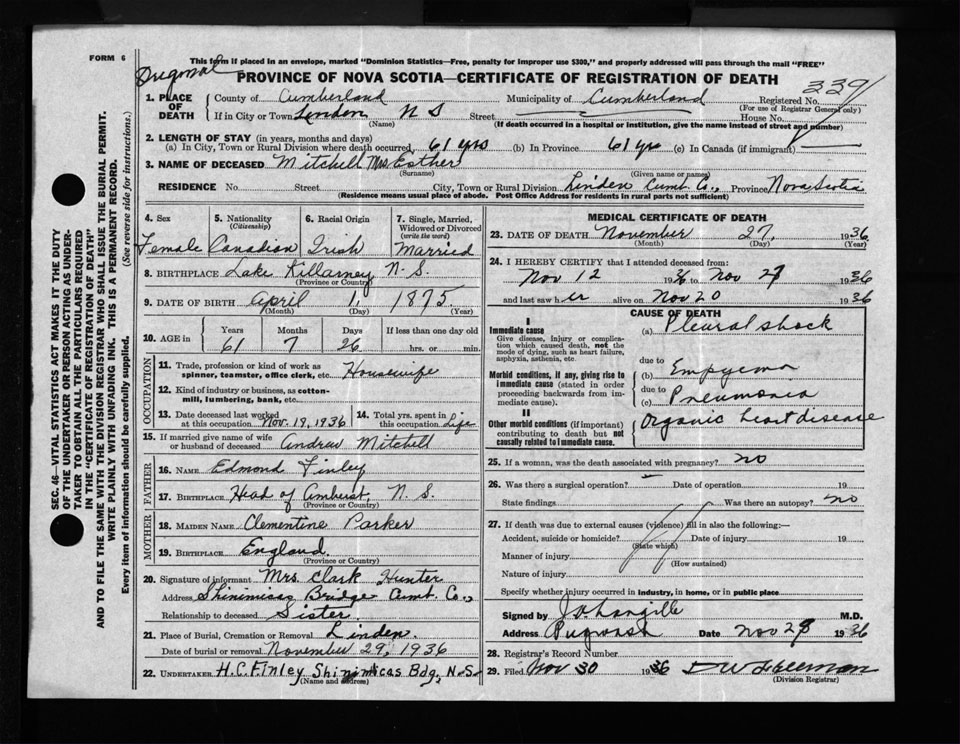 FORM 6
This form if placed in an envelope, marked "Dominion Statistics—Free, penalty for improper use $300," and properly addressed will pass through the mail "FREE"
PROVINCE OF NOVA SCOTIA—CERTIFICATE OF REGISTRATION OF DEATH
339
SEC. 46—VITAL STATISTICS ACT MAKES IT THE DUTY
OF THE UNDERTAKER OR PERSON ACTING AS UNDER-
TAKER TO OBTAIN ALL THE PARTICULARS REQUIRED
IN THE "CERTIFICATE OF REGISTRATION OF DEATH"
AND TO FILE THE SAME WITH THE DIVISION REGISTRAR WHO SHALL ISSUE THE BURIAL PERMIT.
WRITE PLAINLY WITH UNFADING INK. THIS IS A PERMANENT RECORD.
Every item of information should be carefully supplied. (See reverse side for instructions.)
1. PLACE OF DEATH
County of Cumberland Municipality of Cumberland Registered No.
(For use of Registrar General only)
If in City or Town Linden N S Street House No.
(Name) (If death occurred in a hospital or institution, give the name instead of street and number)
2. LENGTH OF STAY (in years, months and days)
(a) In City, Town or Rural Division where death occurred, 61 yrs (b) In Province 61 yr (c) In Canada (if immigrant)
3. NAME OF DECEASED Mitchell Mrs Esther
(Surname) (Given name or names)
RESIDENCE No. Street City, Town or Rural Division Linden Cumt. Co., Province Nova Scotia
(Residence means usual place of abode. Post Office Address for residents in rural parts not sufficient)
4. Sex 5. Nationality (Citizenship) 6. Racial Origin 7. Single, Married, Widowed or Divorced (write the word)
Female Canadian Irish Married
8. BIRTHPLACE Lake Killarney N. S.
(Province or Country)
9. DATE OF BIRTH April 1, 1875.
(Month) (Day) (Year)
10. AGE in Years Months Days If less than one day old
61 7 26 hrs. or min.
OCCUPATION
11. Trade, profession or kind of work as spinner, teamster, office clerk, etc. Housewife
12. Kind of industry or business, as cotton-mill, lumbering, bank, etc.
13. Date deceased last worked at this occupation Nov. 19, 1936 14. Total yrs. spent in this occupation Life
15. If married give name of wife or husband of deceased Andrew Mitchell
FATHER
16. NAME Edmond Finley
17. BIRTHPLACE Head of Amherst, N. S.
(Province or Country)
MOTHER
18. MAIDEN NAME Clementine Parker
19. BIRTHPLACE England.
(Province or Country)
20. Signature of informant Mrs. Clark Hunter
Address Shinimicas Bridge Cumt. Co.,
Relationship to deceased Sister.
21. Place of Burial, Cremation or Removal Linden.
Date of burial or removal November 29, 1936
22. UNDERTAKER H.C. Finley Shinimicas Bdg. N.S.
(Name and address)
MEDICAL CERTIFICATE OF DEATH
23. DATE OF DEATH November 27, 1936
(Month) (Day) (Year)
24. I HEREBY CERTIFY that I attended deceased from:
Nov 12 1936 to Nov 27 1936
and last saw her alive on Nov 20 1936
CAUSE OF DEATH
I
Immediate cause (a) Pleural shock
Give disease, injury or complication which caused death, not the mode of dying, such as heart failure, asphyxia, asthenia, etc.
due to
Morbid conditions, if any, giving rise to immediate cause (stated in order proceeding backwards from immediate cause).
(b) Empyema
due to
(c) Pneumonia
II
Other morbid conditions (if important) contributing to death but not causally related to immediate cause.
Organic heart disease
25. If a woman, was the death associated with pregnancy? no
26. Was there a surgical operation? Date of operation 19
State findings Was there an autopsy? no
27. If death was due to external causes (violence) fill in also the following:—
Accident, suicide or homicide? Date of injury 19
(State which)
Manner of injury
(How sustained)
Nature of injury
Specify whether injury occurred in industry, in home, or in public place
Signed by M.D.
Address Pugwash Date Nov 28 1936
28. Registrar's Record Number
29. Filed Nov 30 1936 D W Freeman
(Division Registrar)